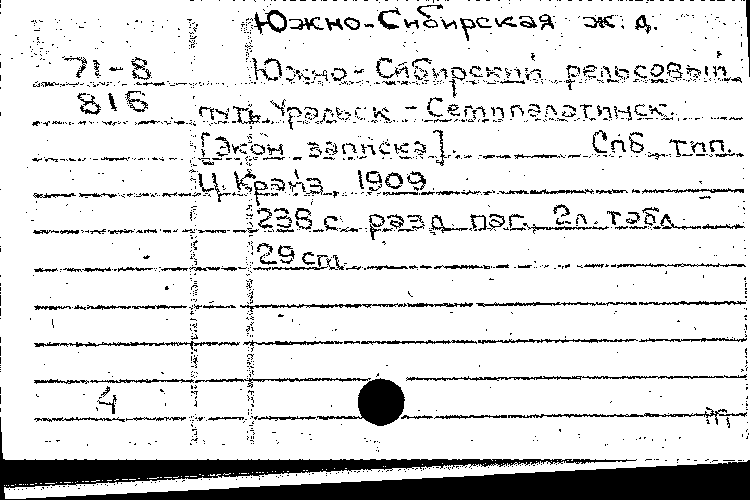 Южно-Сибирская ж. д.
71-8 Южно-Сибирский рельсовый
816 путь Уральск - Семипалатинск.
[Экон записка]. Спб, тип.
Ц. Крайз, 1909
238 с. разд. паг., 2л. табл
29 cm.
4
m